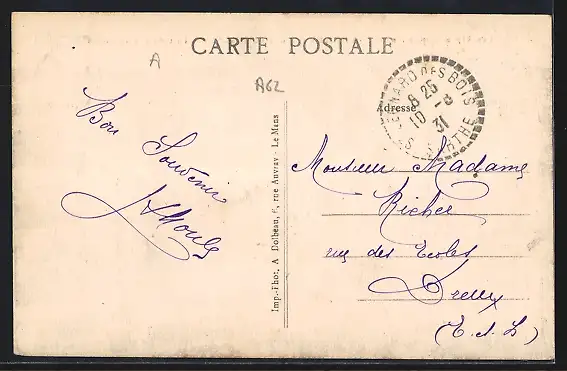 CARTE POSTALE
A
A62
Adresse
ST LÉNARD DES BOIS
6 25
10 -8
31
SARTHE
Bon
Souvenir
Imp.-Phot. A Dolbeau, rue Auvray - Le Mans
Monsieur Madame
Richer
rue des Ecoles
Dreux
(E. et L)